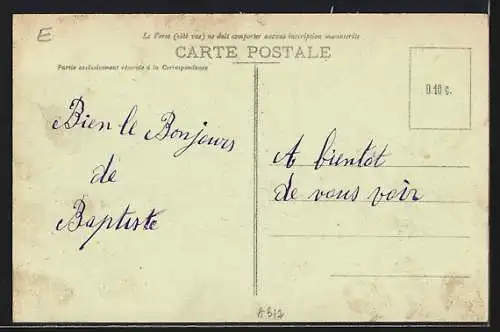 E
Le Verso (côté vue) ne doit comporter aucune inscription manuscrite
CARTE POSTALE
Partie exclusivement réservée à la Correspondance
0.10 c.
Bien le Bonjours
de
Baptiste
A bientot
de vous voir
A312